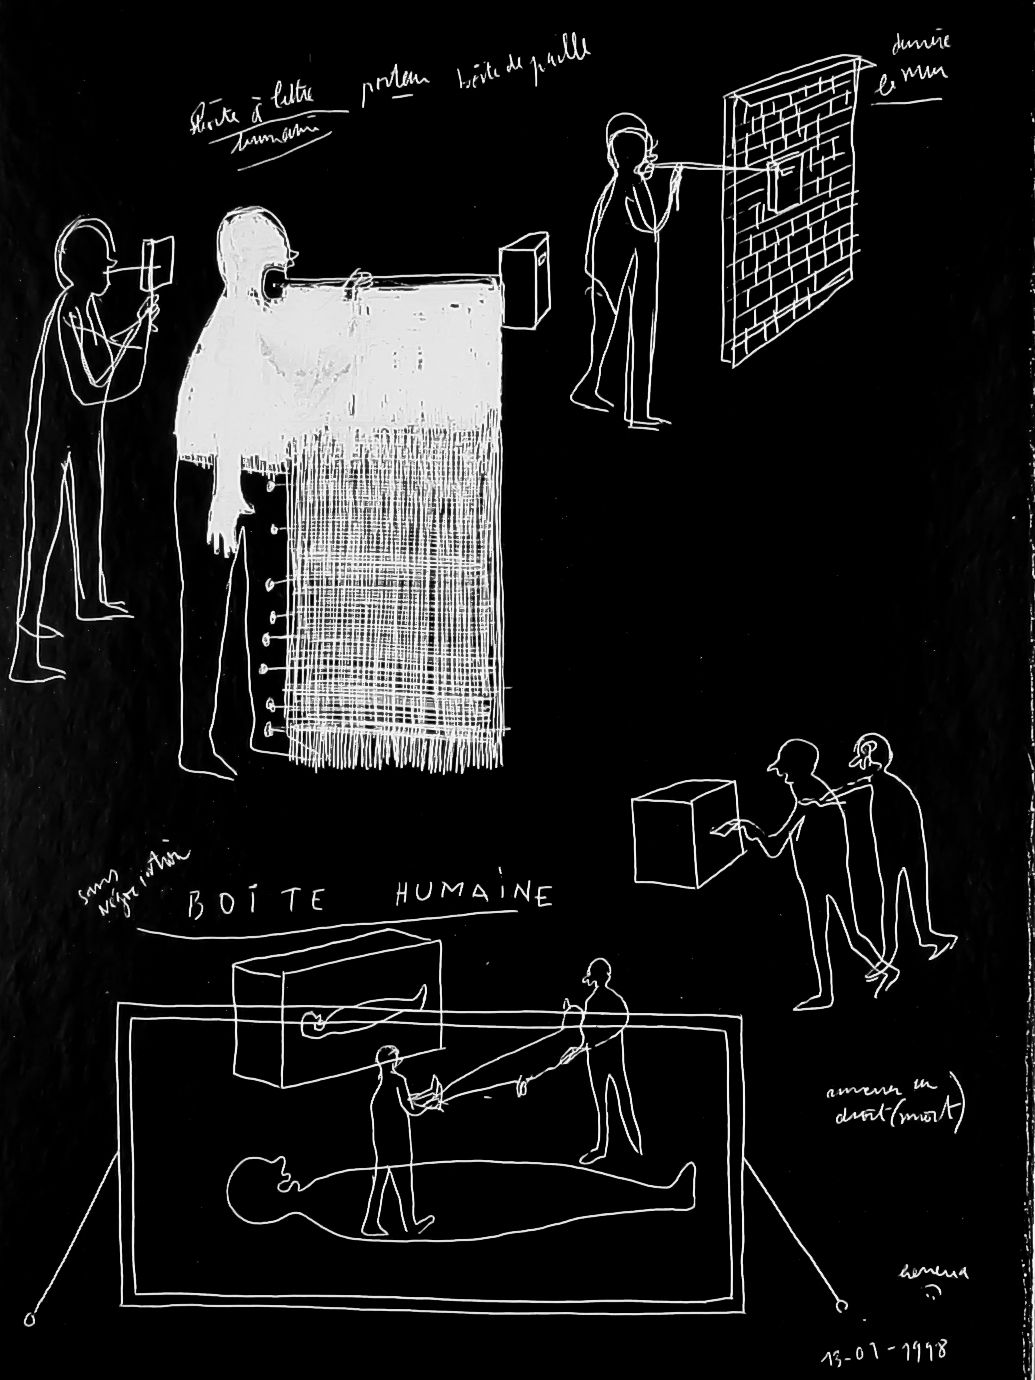 Boîte à lettre
humaine
porteur boîte de paille
derrière
le mur
sans
négociation
BOÎTE HUMAINE
droit (mort)
13-01-1998